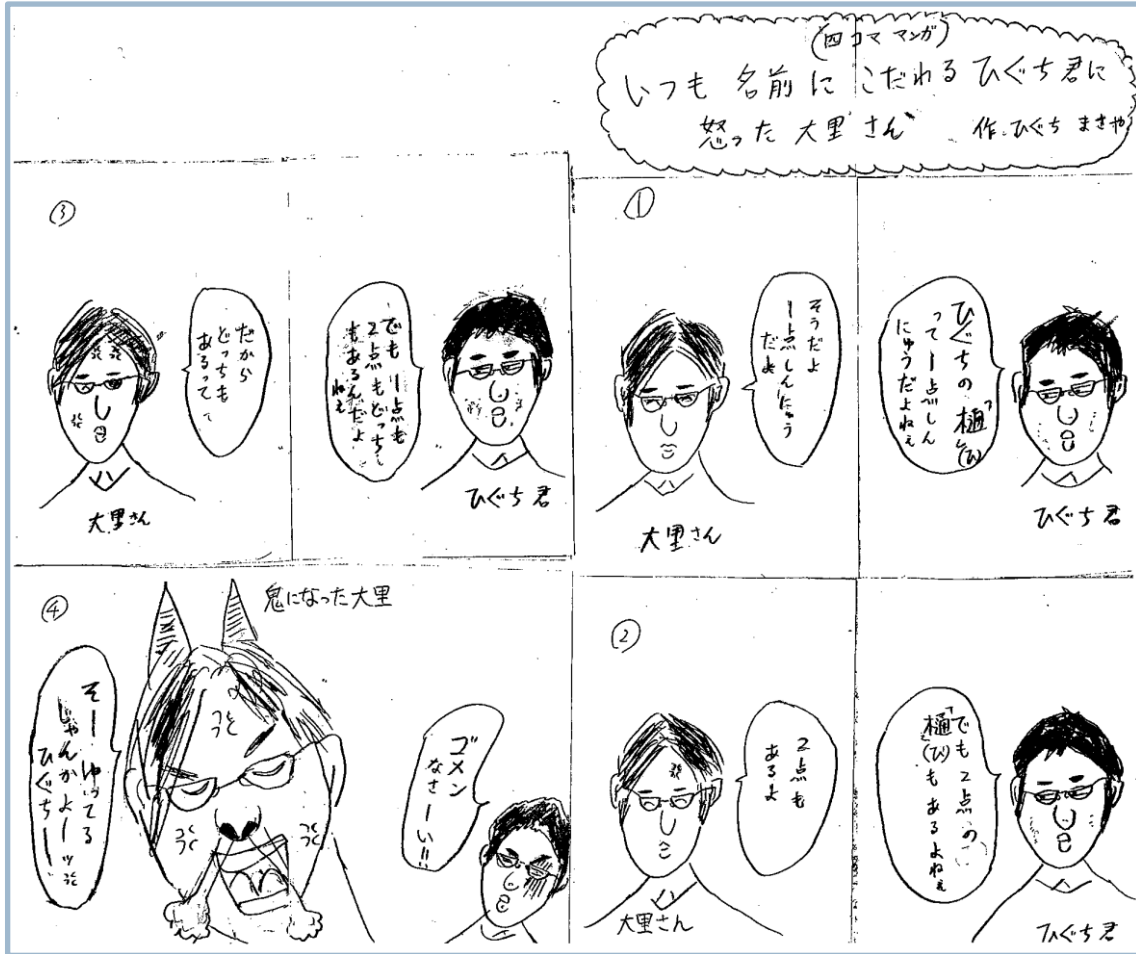 (四コママンガ)
いつも名前にこだわるひぐち君に
怒った大里さん　作.ひぐち まさや
①
ひぐちの「樋」(ひ)
って一点しん
にゅうだよねぇ
ひぐち君
そうだよ
一点しんにゅう
だよ
大里さん
②
でも2点の
「樋」(ひ)もあるよねぇ
ひぐち君
2点も
あるよ
大里さん
③
でも一点も
2点もどっち
もあるんだよ
ねぇ
ひぐち君
だから
どっちも
あるって
大里さん
④
鬼になった大里
ゴメン
なさーい!!
そーゆってる
じゃんかよーッ
ひぐちー